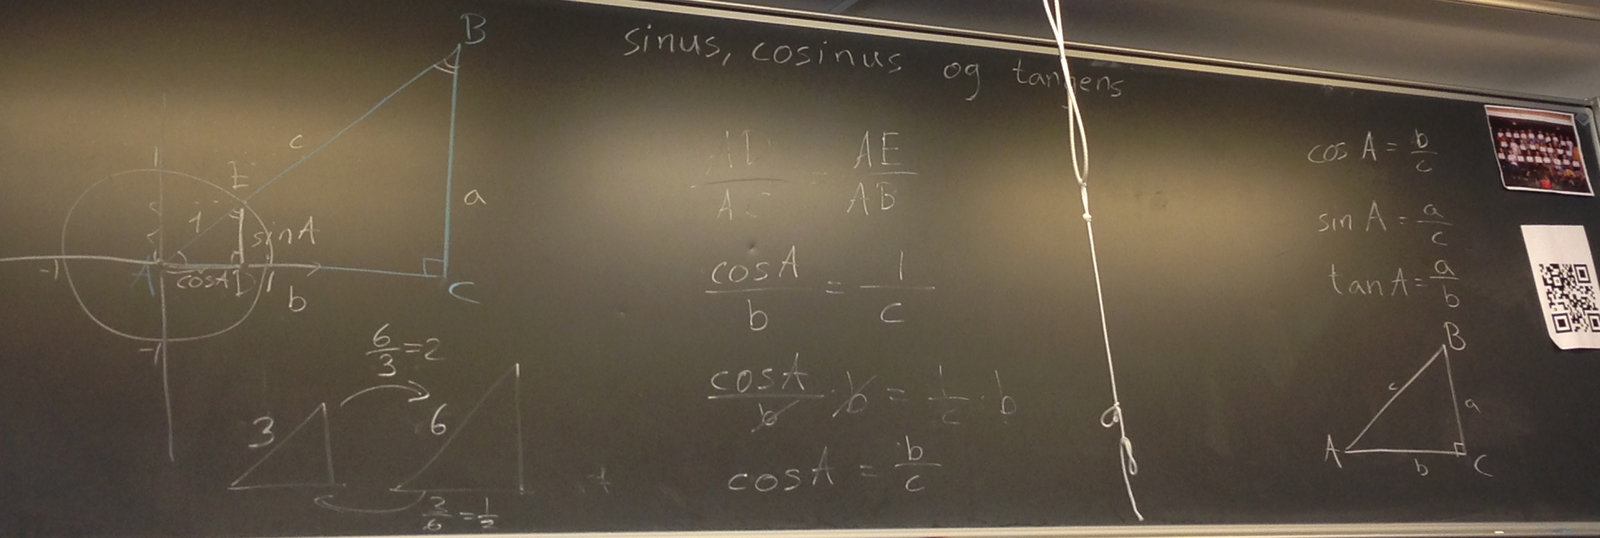 sinus, cosinus og tangens
B
c
a
1
E
1
sin A
-1
A
cosA
D
1
b
C
-1
6/3 = 2
3
6
3/6 = 1/2
AD/AC = AE/AB
cosA/b = 1/c
cosA/b · b = 1/c · b
cosA = b/c
cos A = b/c
sin A = a/c
tan A = a/b
B
c
a
A
b
C